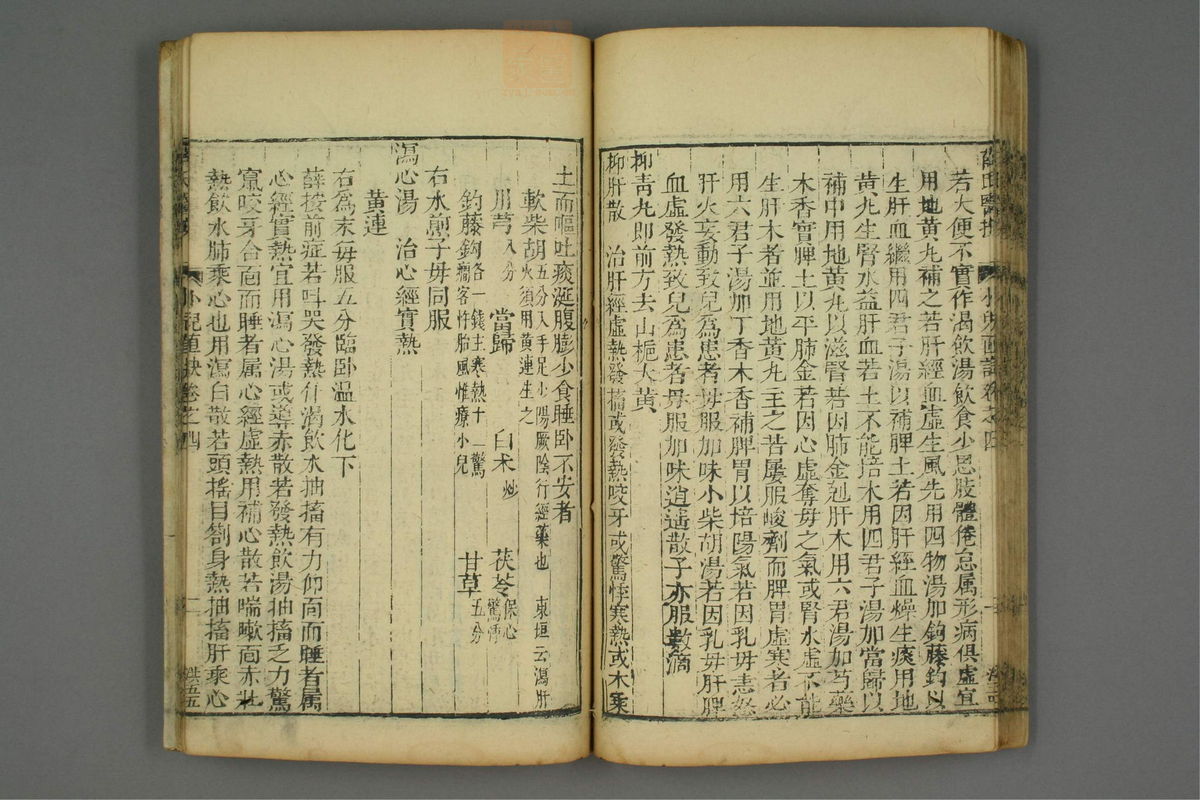 薛氏醫按
小兒直訣卷之四
若大便不實作渴飲湯飲食少思肢體倦怠属形病俱虛宜
用地黃丸補之若肝經血虛生風先用四物湯加鈎藤鈎以
生肝血繼用四君子湯以補脾土若因肝經血燥生痰用地
黃丸生腎水益肝血若土不能培木用四君子湯加當歸以
補中用地黃丸以滋腎若因肺金剋肝木用六君湯加芍藥
木香實脾土以平肺金若因心虛奪母之氣或腎水虛不能
生肝木者並用地黃丸主之若屢服峻劑而脾胃虛寒者必
用六君子湯加丁香木香補脾胃以培陽氣若因乳母恚怒
肝火妄動致兒爲患者母服加味小柴胡湯若因乳母肝脾
血虛發熱致兒爲患者母服加味逍遥散子亦服數滴
抑青丸即前方去山梔大黃
抑肝散　治肝經虛熱發搐或發熱咬牙或驚悸寒熱或木乘
土而嘔吐痰涎腹膨少食睡卧不安者
軟柴胡五分入手足少陽厥隂行經藥也　東垣云瀉肝火須用黃連生之
川芎八分　當歸　白朮炒　茯苓保心驚悸
鈎藤鈎各一錢主寒熱十二驚癎客忤胎風惟療小兒　甘草五分
右水煎子母同服
瀉心湯　治心經實熱
黃連
右爲末每服五分臨卧温水化下
薛按前症若呌哭發熱作渴飲水抽搐有力仰面而睡者属
心經實熱宜用瀉心湯或導赤散若發熱飲湯抽搐乏力驚
竄咬牙合面而睡者属心經虛熱用補心散若喘嗽面赤壮
熱飲水肺乘心也用瀉白散若頭搖目劄身熱抽搐肝乘心
小兒直訣卷之四